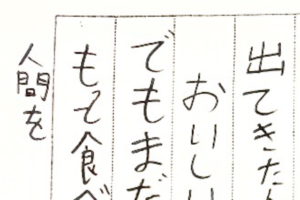 出てきた
おいし
でもまだ
もて食べ
人間を